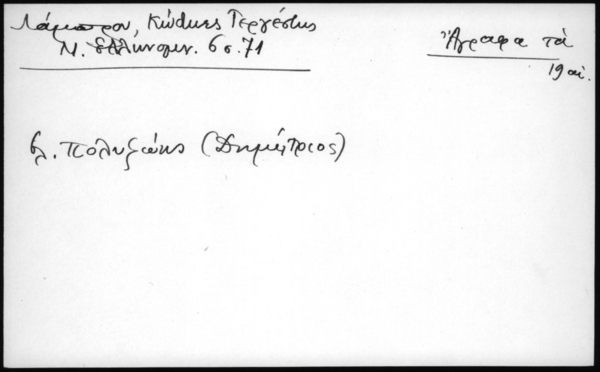 Λάμπρου, Κώδικες Τεργέστης
Ν. Ελληνομν. 6 σ. 71
Ἄγραφα τὰ
19 αἰ.
βλ. Πολυζώης (Δημήτριος)